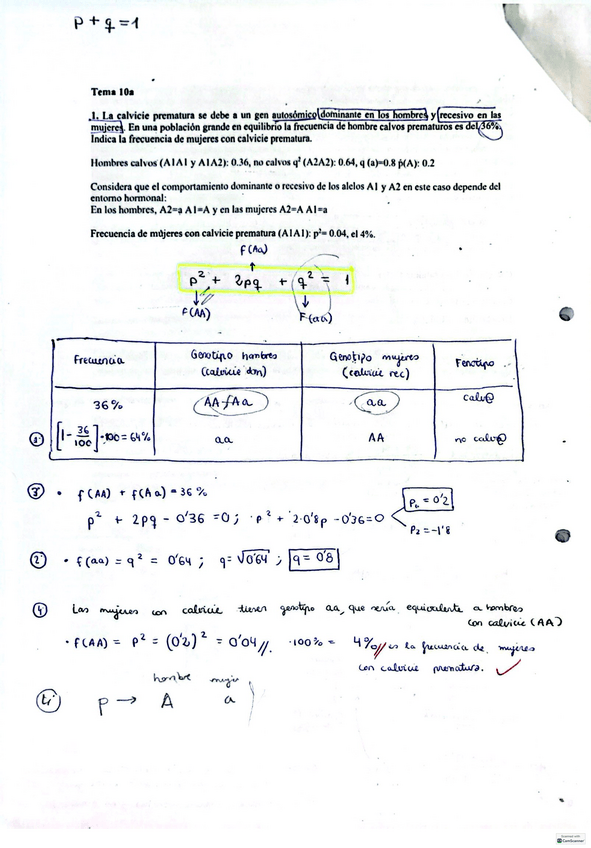 p + q = 1
Tema 10a
1. La calvicie prematura se debe a un gen autosómico dominante en los hombres y recesivo en las
mujeres. En una población grande en equilibrio la frecuencia de hombre calvos prematuros es del 36%.
Indica la frecuencia de mujeres con calvicie prematura.
Hombres calvos (A1A1 y A1A2): 0.36, no calvos q² (A2A2): 0.64, q (a)=0.8 p(A): 0.2
Considera que el comportamiento dominante o recesivo de los alelos A1 y A2 en este caso depende del
entorno hormonal:
En los hombres, A2=a A1=A y en las mujeres A2=A A1=a
Frecuencia de mujeres con calvicie prematura (A1A1): p²= 0.04, el 4%.
f(Aa)
p² + 2pq + q² = 1
f(AA) F(aa)
Frecuencia Genotipo hombres Genotipo mujeres Fenotipo
(calvicie dom) (calvicie rec)
36% AA y Aa aa calv@
① [1 - 36/100] · 100 = 64% aa AA no calv@
③ · f(AA) + f(Aa) = 36%
p² + 2pq - 0'36 = 0 ; p² + 2·0'8p - 0'36 = 0 P₁ = 0'2
P₂ = -1'8
② · f(aa) = q² = 0'64 ; q = √0'64 ; q = 0'8
④ Las mujeres con calvicie tienen genotipo aa, que sería equivalente a hombres
con calvicie (AA)
· f(AA) = p² = (0'2)² = 0'04 // ·100% = 4% // es la frecuencia de mujeres
con calvicie prematura.
hombre mujer
p → A a
CamScanner